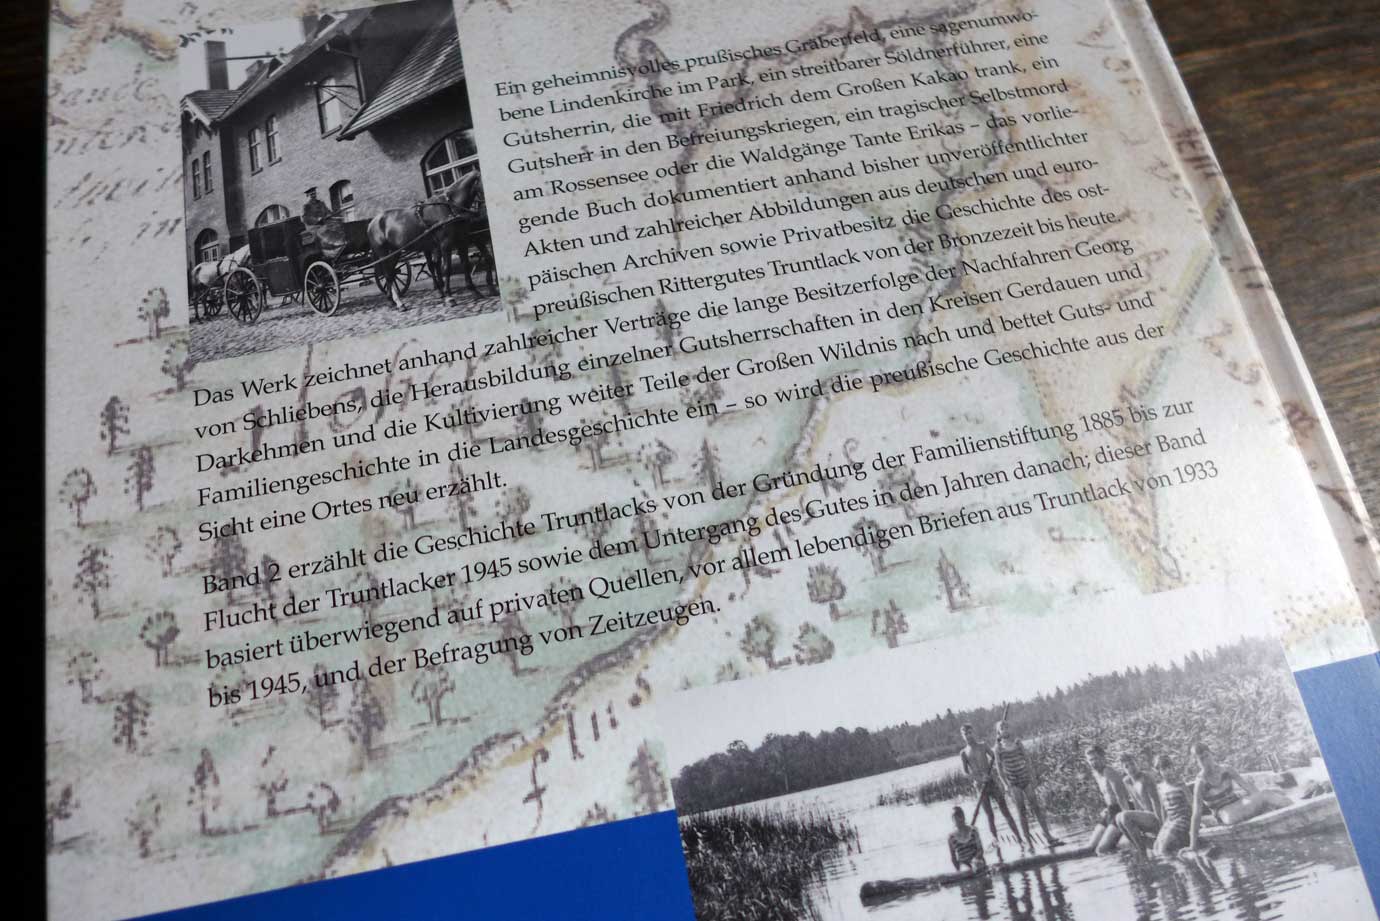 Ein geheimnisvolles prußisches Gräberfeld, eine sagenumwo-
bene Lindenkirche im Park, ein streitbarer Söldnerführer, eine
Gutsherrin, die mit Friedrich dem Großen Kakao trank, ein
Gutsherr in den Befreiungskriegen, ein tragischer Selbstmord
am Rossensee oder die Waldgänge Tante Erikas – das vorlie-
gende Buch dokumentiert anhand bisher unveröffentlichter
Akten und zahlreicher Abbildungen aus deutschen und euro-
päischen Archiven sowie Privatbesitz die Geschichte des ost-
preußischen Rittergutes Truntlack von der Bronzezeit bis heute.
Das Werk zeichnet anhand zahlreicher Verträge die lange Besitzerfolge der Nachfahren Georg
von Schliebens, die Herausbildung einzelner Gutsherrschaften in den Kreisen Gerdauen und
Darkehmen und die Kultivierung weiter Teile der Großen Wildnis nach und bettet Guts- und
Familiengeschichte in die Landesgeschichte ein – so wird die preußische Geschichte aus der
Sicht eine Ortes neu erzählt.
Band 2 erzählt die Geschichte Truntlacks von der Gründung der Familienstiftung 1885 bis zur
Flucht der Truntlacker 1945 sowie dem Untergang des Gutes in den Jahren danach; dieser Band
basiert überwiegend auf privaten Quellen, vor allem lebendigen Briefen aus Truntlack von 1933
bis 1945, und der Befragung von Zeitzeugen.